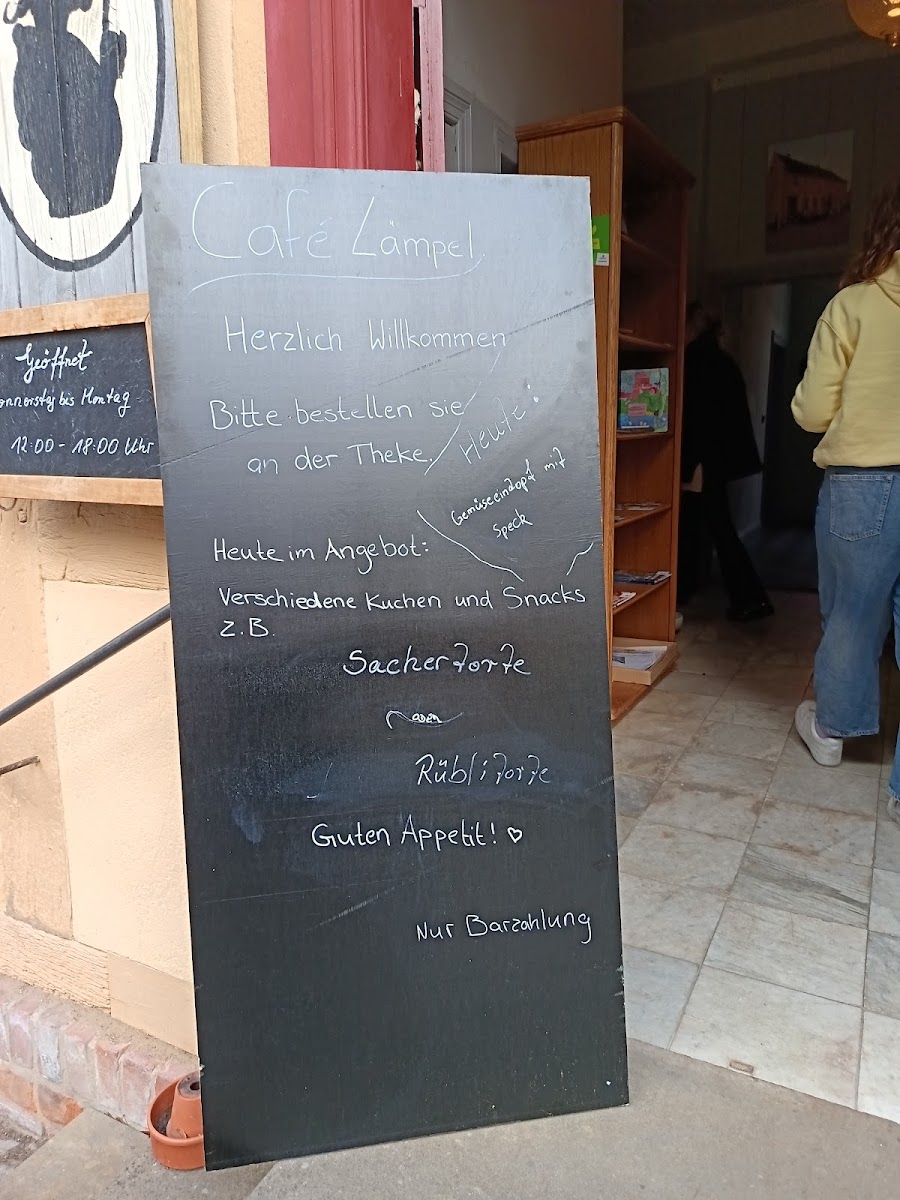 Café Lämpel
Herzlich Willkommen
Bitte bestellen sie
an der Theke.
Heute:
Gemüseeindopf mit
Speck
Heute im Angebot:
Verschiedene Kuchen und Snacks
z.B.
Sachertorte
oder
Rüblitorte
Guten Appetit! ♡
Nur Barzahlung
Geöffnet
onnerstag bis Montag
12:00 - 18:00 Uhr